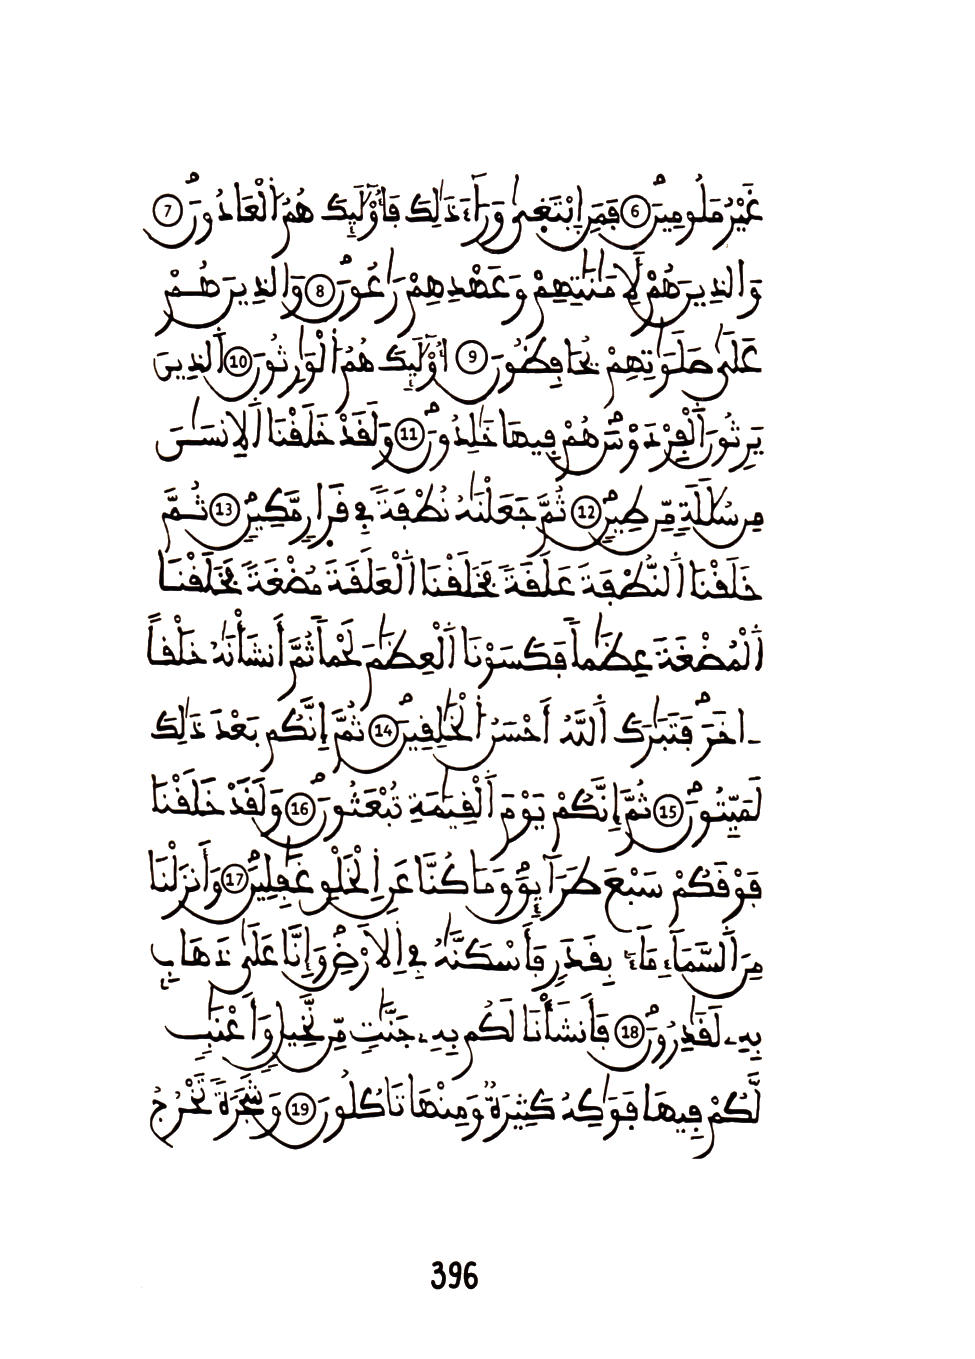 غَيْرُ مَلُومِينَ 6 فَمَنِ اِبْتَغ۪ىٰ وَرَآءَ ذَٰلِكَ فَأُوْلَٰٓئِكَ هُمُ اُ۬لْعَادُونَ 7
وَالذِينَ هُمْ لِأَمَٰنَٰتِهِمْ وَعَهْدِهِمْ رَٰعُونَ 8 وَالذِينَ هُمْ
عَلَىٰ صَلَوَٰتِهِمْ يُحَافِظُونَ 9 أُوْلَٰٓئِكَ هُمُ اُ۬لْوَٰرِثُونَ 10 اَ۬لذِينَ
يَرِثُونَ اَ۬لْفِرْدَوْسَ هُمْ فِيهَا خَٰلِدُونَ 11 وَلَقَدْ خَلَقْنَا اَ۬لِانسَٰنَ
مِن سُلَٰلَةٖ مِّن طِينٖ 12 ثُمَّ جَعَلْنَٰهُ نُطْفَةٗ فِي قَر۪ارٖ مَّكِينٖ 13 ثُمَّ
خَلَقْنَا اَ۬لنُّطْفَةَ عَلَقَةٗ فَخَلَقْنَا اَ۬لْعَلَقَةَ مُضْغَةٗ فَخَلَقْنَا
اَ۬لْمُضْغَةَ عِظَٰماٗ فَكَسَوْنَا اَ۬لْعِظَٰمَ لَحْماٗ ثُمَّ أَنشَأْنَٰهُ خَلْقاً
ـ اخَرَ فَتَبَٰرَكَ اَ۬للَّهُ أَحْسَنُ اُ۬لْخَٰلِقِينَ 14 ثُمَّ إِنَّكُم بَعْدَ ذَٰلِكَ
لَمَيِّتُونَ 15 ثُمَّ إِنَّكُمْ يَوْمَ اَ۬لْقِيَٰمَةِ تُبْعَثُونَ 16 وَلَقَدْ خَلَقْنَا
فَوْقَكُمْ سَبْعَ طَرَآئِقَ وَمَا كُنَّا عَنِ اِ۬لْخَلْقِ غَٰفِلِينَ 17 وَأَنزَلْنَا
مِنَ اَ۬لسَّمَآءِ مَآءَۢ بِقَدَرٖ فَأَسْكَنَّٰهُ فِي اِ۬لَارْضِ وَإِنَّا عَلَىٰ ذَهَابِۢ
بِهِۦ لَقَٰدِرُونَ 18 فَأَنشَأْنَا لَكُم بِهِۦ جَنَّٰتٖ مِّن نَّخِيلٖ وَأَعْنَٰبٖ
لَّكُمْ فِيهَا فَوَٰكِهُ كَثِيرَةٞ وَمِنْهَا تَاكُلُونَ 19 وَشَجَرَةٗ تَخْرُجُ
396